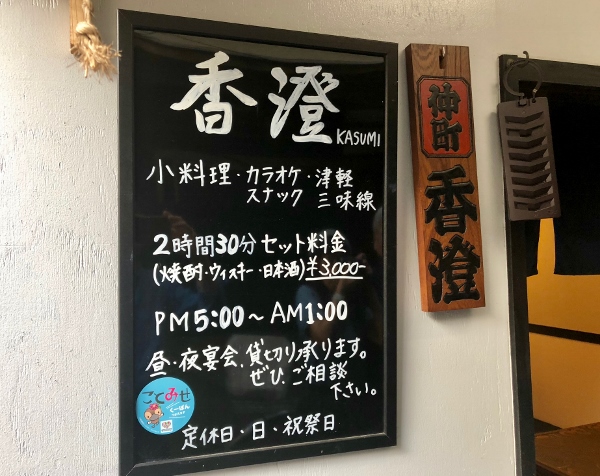 香澄
KASUMI
小料理・カラオケ・津軽
スナック 三味線
2時間30分セット料金
(焼酎・ウィスキー・日本酒)¥3,000-
PM5:00〜AM1:00
昼・夜宴会、貸切り承ります。
ぜひ、ご相談
下さい。
ごくみせ
くーぽん
定休日・日・祝祭日
仲町
香澄